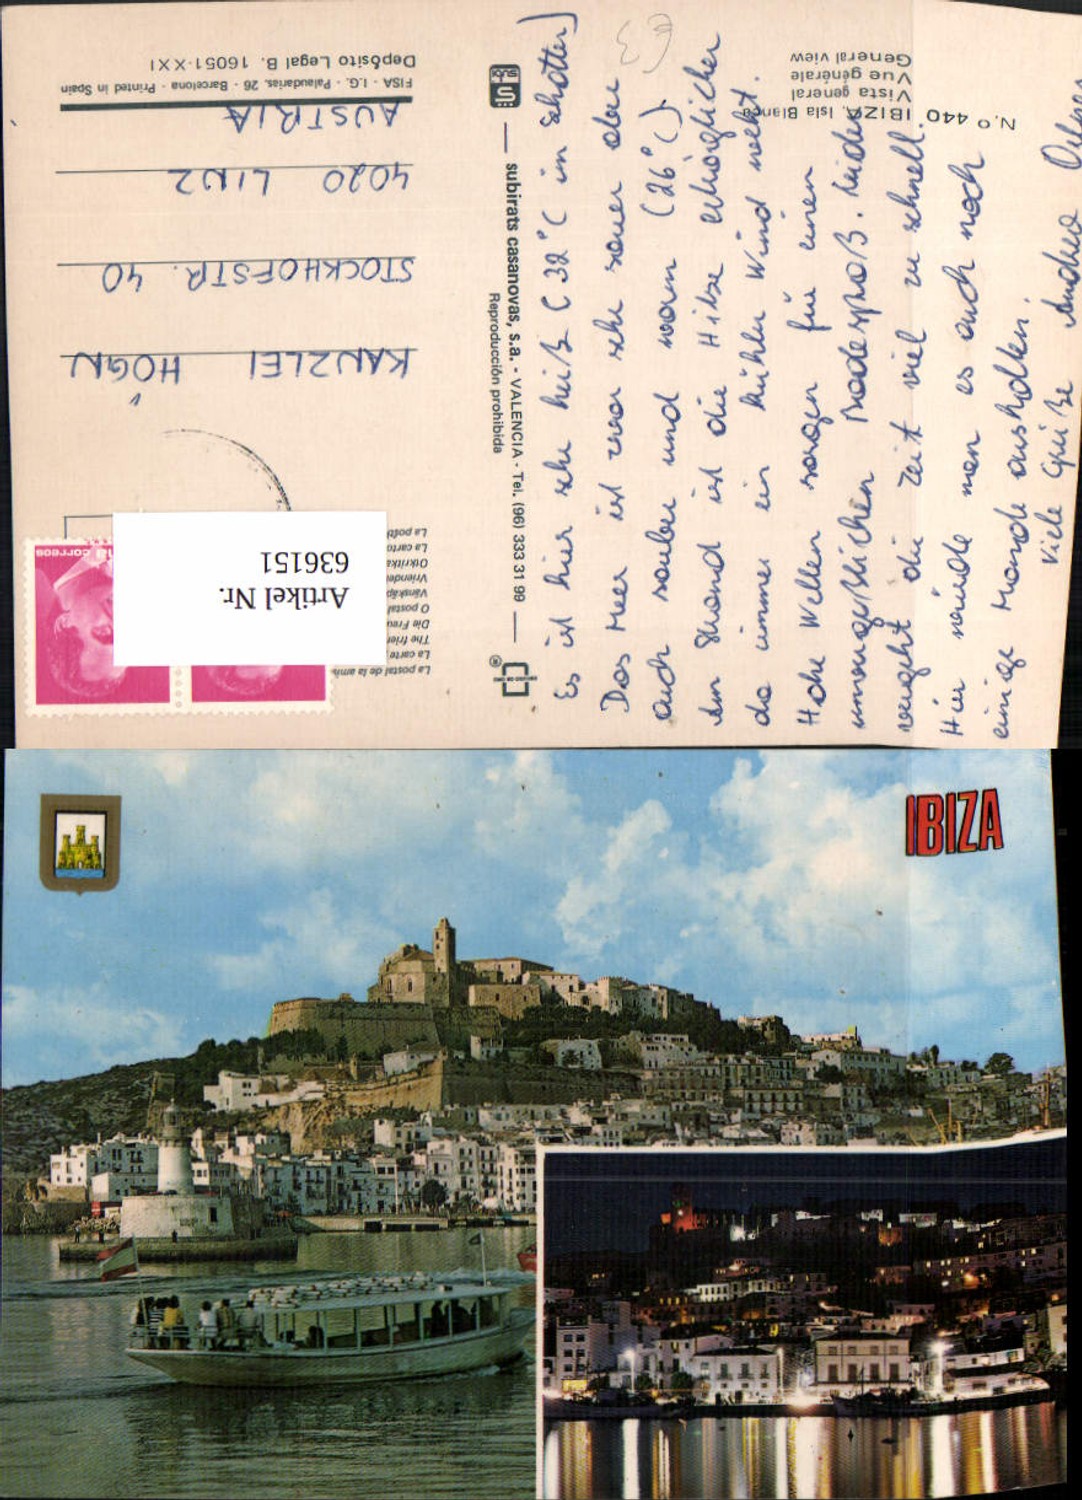 N.º 440 IBIZA, Isla Blanca
Vista general
Vue générale
General view
Es ist hier sehr heiß (32°C im Schatten)
Das Meer ist zwar sehr sauer aber
auch sauber und warm (26°C).
Am Strand ist die Hitze erträglicher
da immer ein kühler Wind weht.
Hohe Wellen sorgen für einen
unvergeßlichen Badespaß. Leider
vergeht die Zeit viel zu schnell.
Hier würde man es auch noch
einige Monate aushalten.
Viele Grüße Andrea
subirats casanovas, s.a. - VALENCIA - Tel. (96) 333 31 99
Reproducción prohibida
La postal de la amis
La carte
The frien
Die Freu
O postal
Vänskap
Vriende
Otkritka
La carto
La posto
correos
Artikel Nr.
636151
KANZLEI HÖGN
STOCKHOFSTR. 40
4020 LINZ
AUSTRIA
FISA - I.G. - Palaudarias, 26 - Barcelona - Printed in Spain
Depósito Legal B. 16051-XXI
IBIZA